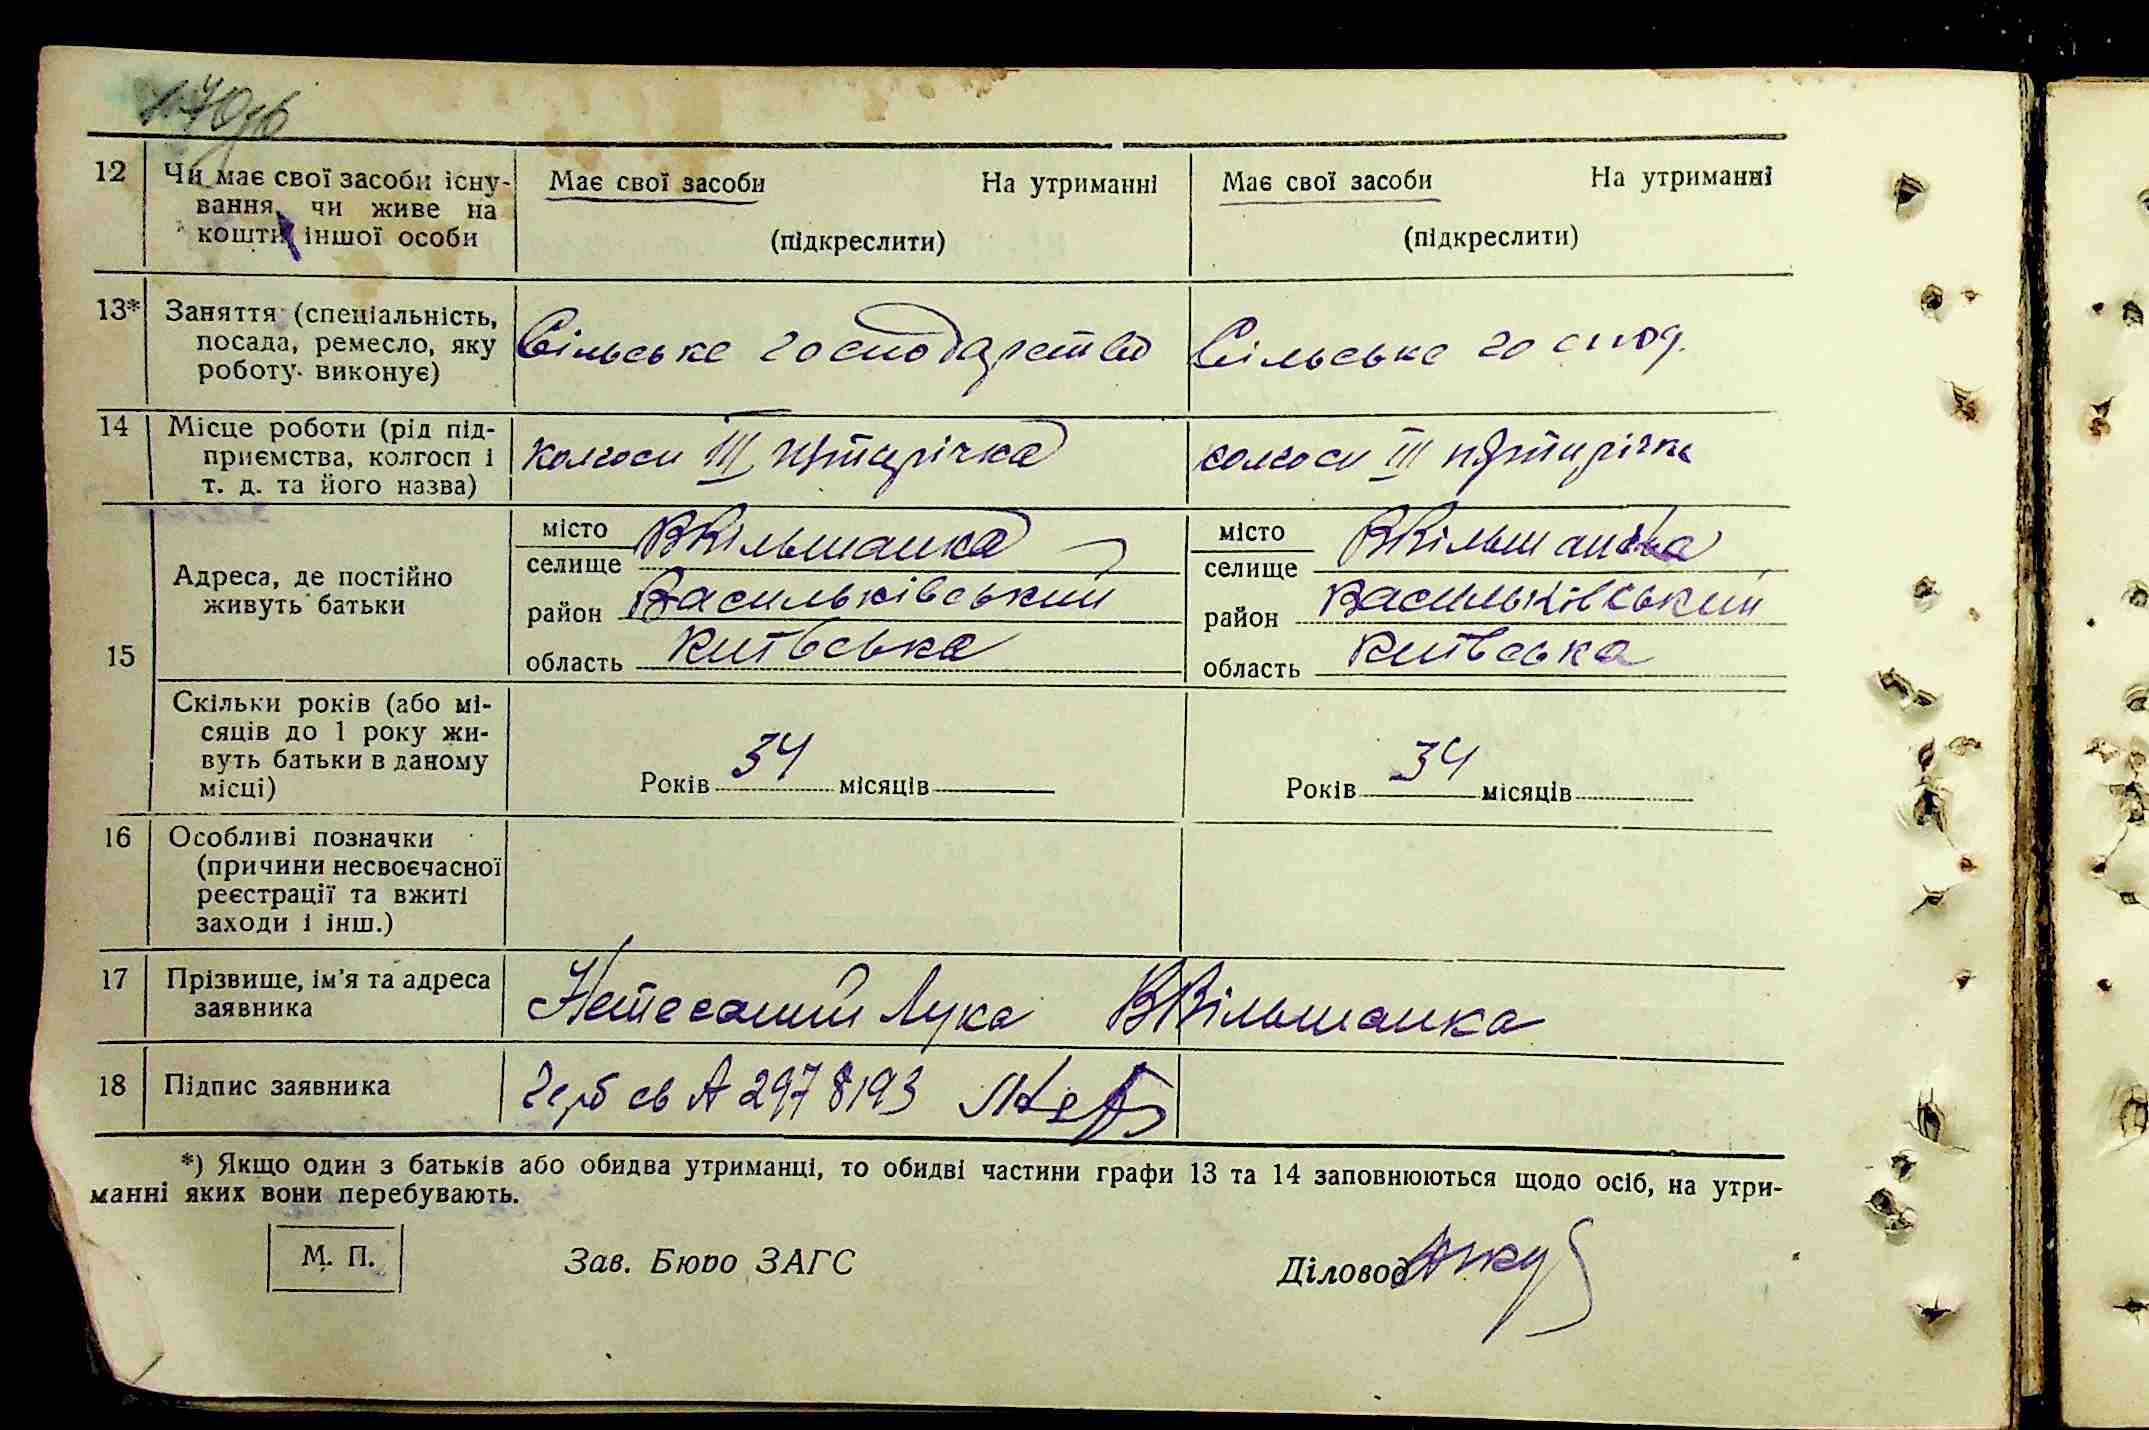 170
12 Чи має свої засоби існу-
вання, чи живе на
кошти іншої особи
Має свої засоби На утриманні
(підкреслити)
Має свої засоби На утриманні
(підкреслити)
13* Заняття (спеціальність,
посада, ремесло, яку
роботу виконує)
Сільське господарство
Сільське господ.
14 Місце роботи (рід під-
приємства, колгосп і
т. д. та його назва)
колгосп III пятирічка
колгосп III пятирічка
15
Адреса, де постійно
живуть батьки
місто
селище ВВільшанка
район Васильківський
область Київська
місто
селище ВВільшанка
район Васильківський
область Київська
Скільки років (або мі-
сяців до 1 року жи-
вуть батьки в даному
місці)
Років 34 місяців
Років 34 місяців
16 Особливі позначки
(причини несвоєчасної
реєстрації та вжиті
заходи і інш.)
17 Прізвище, ім'я та адреса
заявника
Нетесаний Лука ВВільшанка
18 Підпис заявника
Герб св А 2978193
*) Якщо один з батьків або обидва утриманці, то обидві частини графи 13 та 14 заповнюються щодо осіб, на утри-
манні яких вони перебувають.
М. П.
Зав. Бюро ЗАГС
Діловод